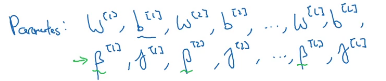 Parameters: W^[1], b^[1], W^[2], b^[2], ..., W^[L], b^[L],
→ β^[1], γ^[1], β^[2], γ^[2], ..., β^[L], γ^[L]